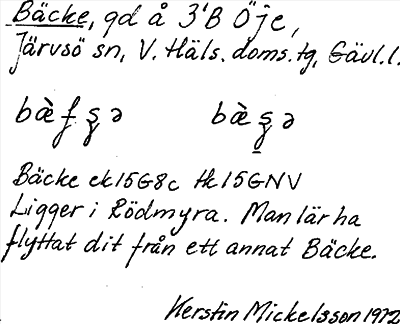 Bäcke, gd å 3¹B Öje,
Järvsö sn, V. Häls. doms. tg, Gävl. l.
Bäcke ek 15G8c tk 15G NV
Ligger i Rödmyra. Man lär ha
flyttat dit från ett annat Bäcke.
Kerstin Mickelsson 1972